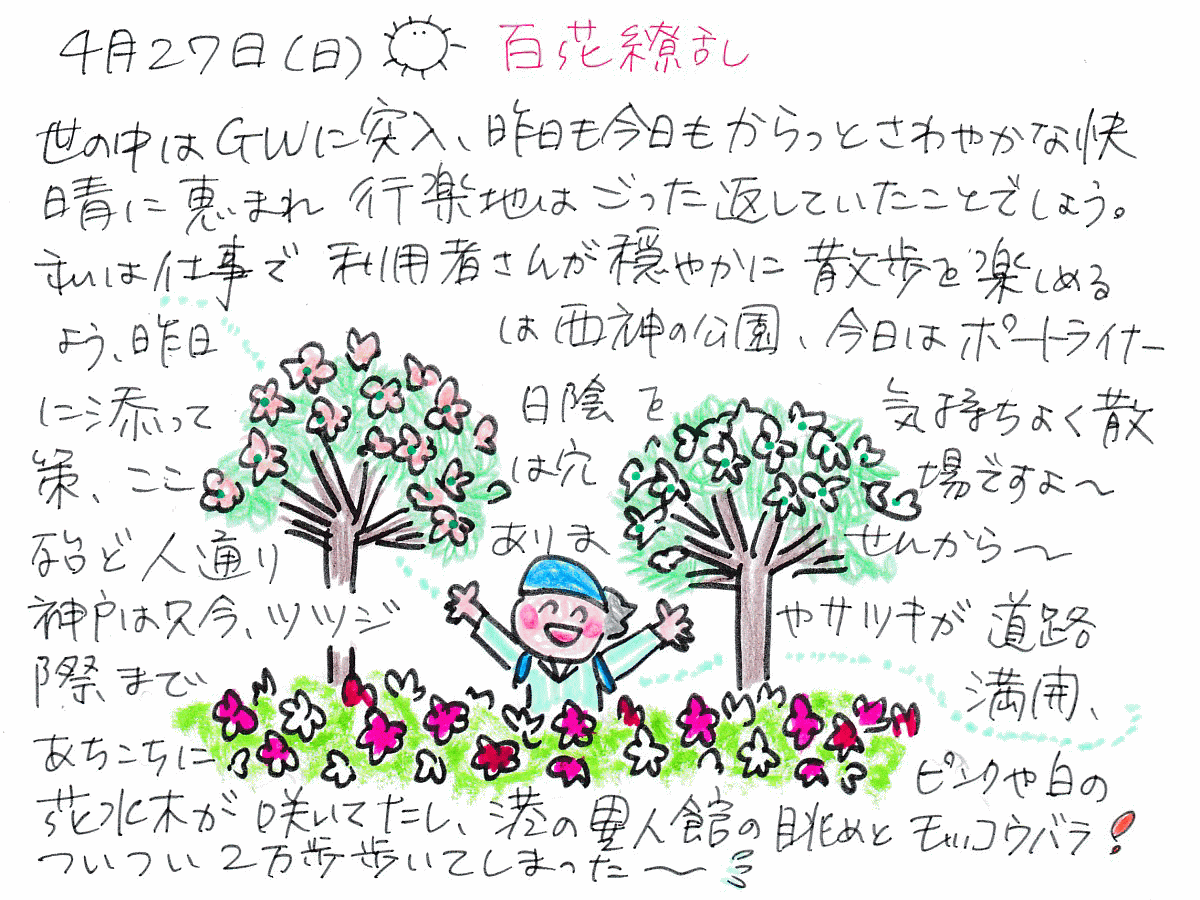 4月27日(日) 百花繚乱
世の中はGWに突入、昨日も今日もからっとさわやかな快
晴に恵まれ 行楽地はごった返していたことでしょう。
私は仕事で 利用者さんが穏やかに 散歩を楽しめる
よう、昨日は西神の公園、今日はポートライナー
に添って日陰を気持ちよく散
策、ここは穴場ですよ〜
殆ど人通りありませんから〜
神戸は只今、ツツジやサツキが道路
際まで満開、
あちこちにピンクや白の
花水木が咲いてたし、港の異人館の眺めとモッコウバラ!
ついつい2万歩歩いてしまった〜